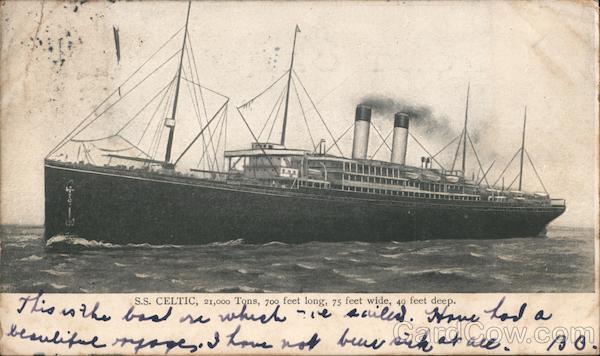 S.S. CELTIC, 21,000 Tons, 700 feet long, 75 feet wide, 40 feet deep.
This is the boat on which we sailed. Have had a
beautiful voyage, I have not been sick at all. B.O.
CardCow.com